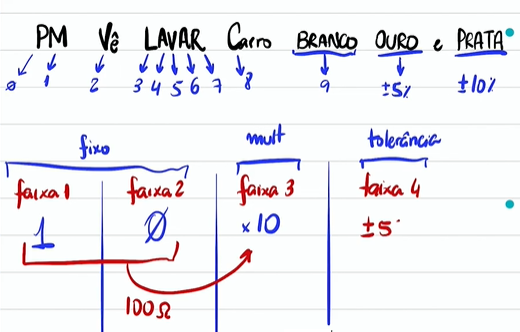 PM Vê LAVAR Carro BRANCO OURO e PRATA
0 1 2 3 4 5 6 7 8 9 ±5% ±10%
fixo mult tolerância
faixa 1 faixa 2 faixa 3 faixa 4
1 0 x 10 ±5
100Ω